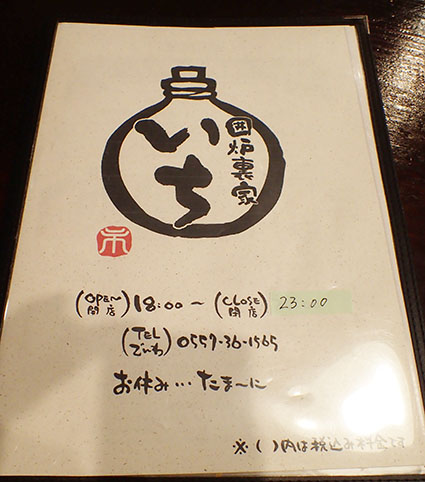 囲炉裏家
いち
市
(OPEN 開店) 18:00 ～ (CLOSE 閉店) 23:00
(TEL でんわ) 0557-36-1565
お休み…たま〜に
※( )内は税込み料金です